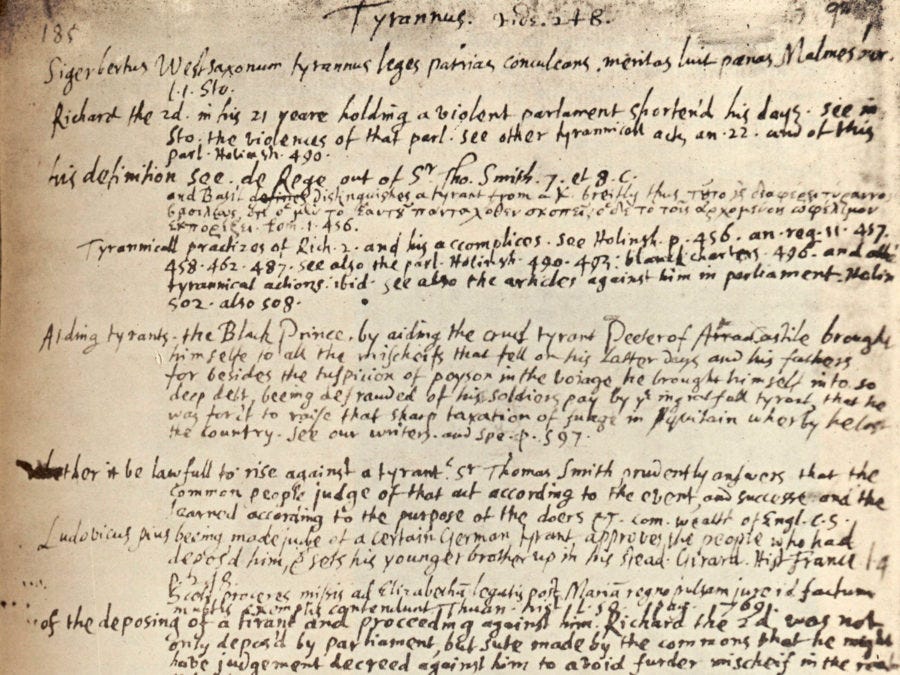 185 Tyrannus. vide. 248.
Sigerbertus Westsaxonum tyrannus leges patrias conculcans, meritas luit pænas Malmesbur.
l. 1. Sto.
Richard the 2d. in his 21 yeare holding a violent parlament shorten'd his days. see in
Sto. the violences of that parl. see other tyrannicall acts an. 22. and of this
parl. Holinsh. 490.
his definition see. de Rege out of Sr Tho. Smith. 7. et 8. C.
and Basil defines distinguishes a tyrant from a K. breifly thus τȣ̃το γὰρ διαφέρει τύραννος
βασιλέως, ὅτι ὁ μὲν τὸ ἑαυτȣ̃ πανταχόθεν σκοπεῖ, ὁ δὲ τὸ τοῖς ἀρχομένοις ὠφέλιμον
ἐκπορίζει. tom. 1. 456.
Tyrannicall practizes of Rich. 2. and his accomplices. see Holinsh. p. 456. an. reg. 11. 457.
458. 462. 487. see also the parl. Holinsh. 490. 493. blanck charters. 496. and
tyrannical actions. ibid. see also the articles against him in parliament. Holin
502. also 508.
Aiding tyrants. the Black Prince, by aiding the cruel tyrant Peeter of castile brought
himselfe to all the mischeifs that fell on his latter days and his fathers
for besides the suspicion of poyson in the voiage he brought himself into so
deep debt, beeing defrauded of his soldiers pay by ye ingratfull tyrant, that he
was forc't to raise that sharp taxation of fuage in Aquitain wherby he lost
the country. see our writers. and Spe. p. 597.
Whether it be lawfull to rise against a tyrant? Sr Thomas Smith prudently answers that the
common people judge of that act according to the event and successe. and the
learned according to the purpose of the doers &c. com. wealth of Engl. C. 5.
Ludovicus pius beeing made judge of a certain German tyrant, approves the people who had
depos'd him, & sets his younger brother up in his stead. Girard. Hist France l 4
Scoti proceres missis ad Elizabetham legatis post Mariā regno pulsam jure id factum
multis exemplis contendunt Thuan. hist. l. 50. pag. 769.
of the deposing of a tirant and proceeding against him. Richard the 2d. was not
only depos'd by parliament, but sute made by the commons that he might
have judgement decreed against him to avoid furder mischeif in the